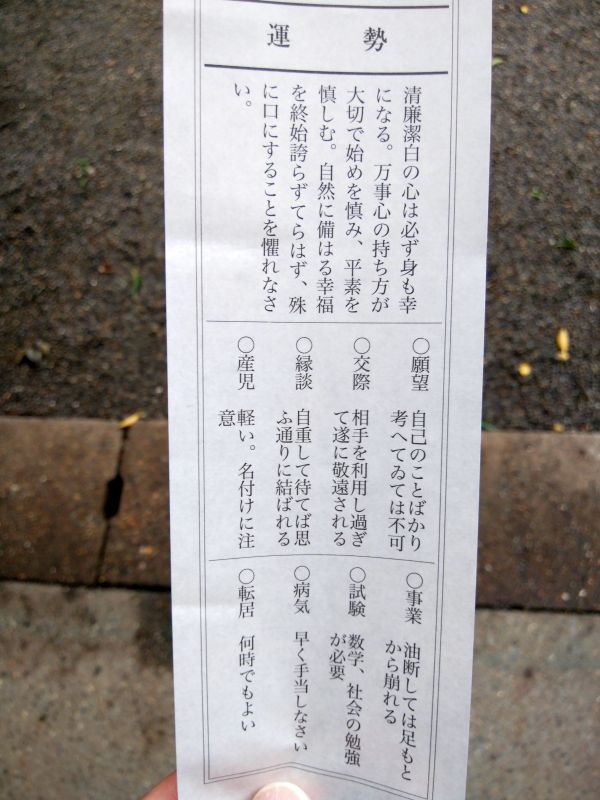 運勢
清廉潔白の心は必ず身も幸
になる。万事心の持ち方が
大切で始めを慎み、平素を
慎しむ。自然に備はる幸福
を終始誇らずてらはず、殊
に口にすることを懼れなさ
い。
○願望 自己のことばかり
考へてゐては不可
○交際 相手を利用し過ぎ
て遂に敬遠される
○縁談 自重して待てば思
ふ通りに結ばれる
○産児 軽い。名付けに注
意
○事業 油断しては足もと
から崩れる
○試験 数学、社会の勉強
が必要
○病気 早く手当しなさい
○転居 何時でもよい